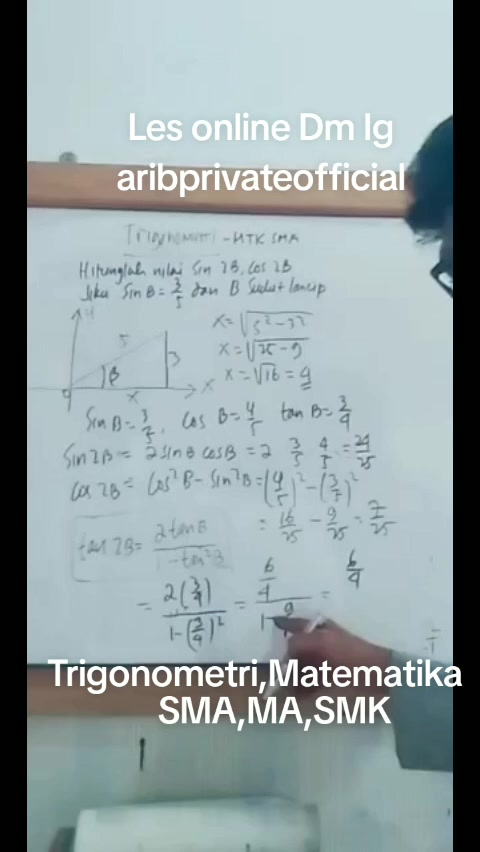 Les online Dm Ig
aribprivateofficial
Trigonometri - MTK SMA
Hitunglah nilai Sin 2B, Cos 2B
Jika Sin B = 3/5 dan B Sudut lancip
y
5
3
B
x
x
0
x = √(5² - 3²)
x = √(25 - 9)
x = √16 = 4
Sin B = 3/5, Cos B = 4/5 tan B = 3/4
Sin 2B = 2 sin B cos B = 2 3/5 4/5 = 24/25
Cos 2B = Cos² B - Sin² B = (4/5)² - (3/5)²
= 16/25 - 9/25 = 7/25
tan 2B = 2 tan B / 1 - tan² B
= 2(3/4) / 1 - (3/4)² = 6/4 / 1 - 9 = 6/4
Trigonometri,Matematika
SMA,MA,SMK